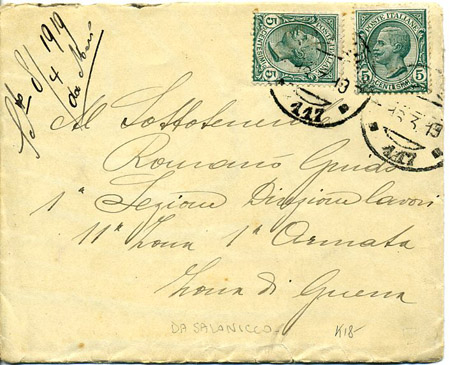 1919
4
5 POSTE ITALIANE 5
POSTE ITALIANE
5 CENTESIMI 5
19
117
16.3.19
117
Al Sottotenente
Romano Guido
1ª Sezione Divisione lavori
11ª Zona 1ª Armata
Zona di Guerra
DA SALONICCO
K18